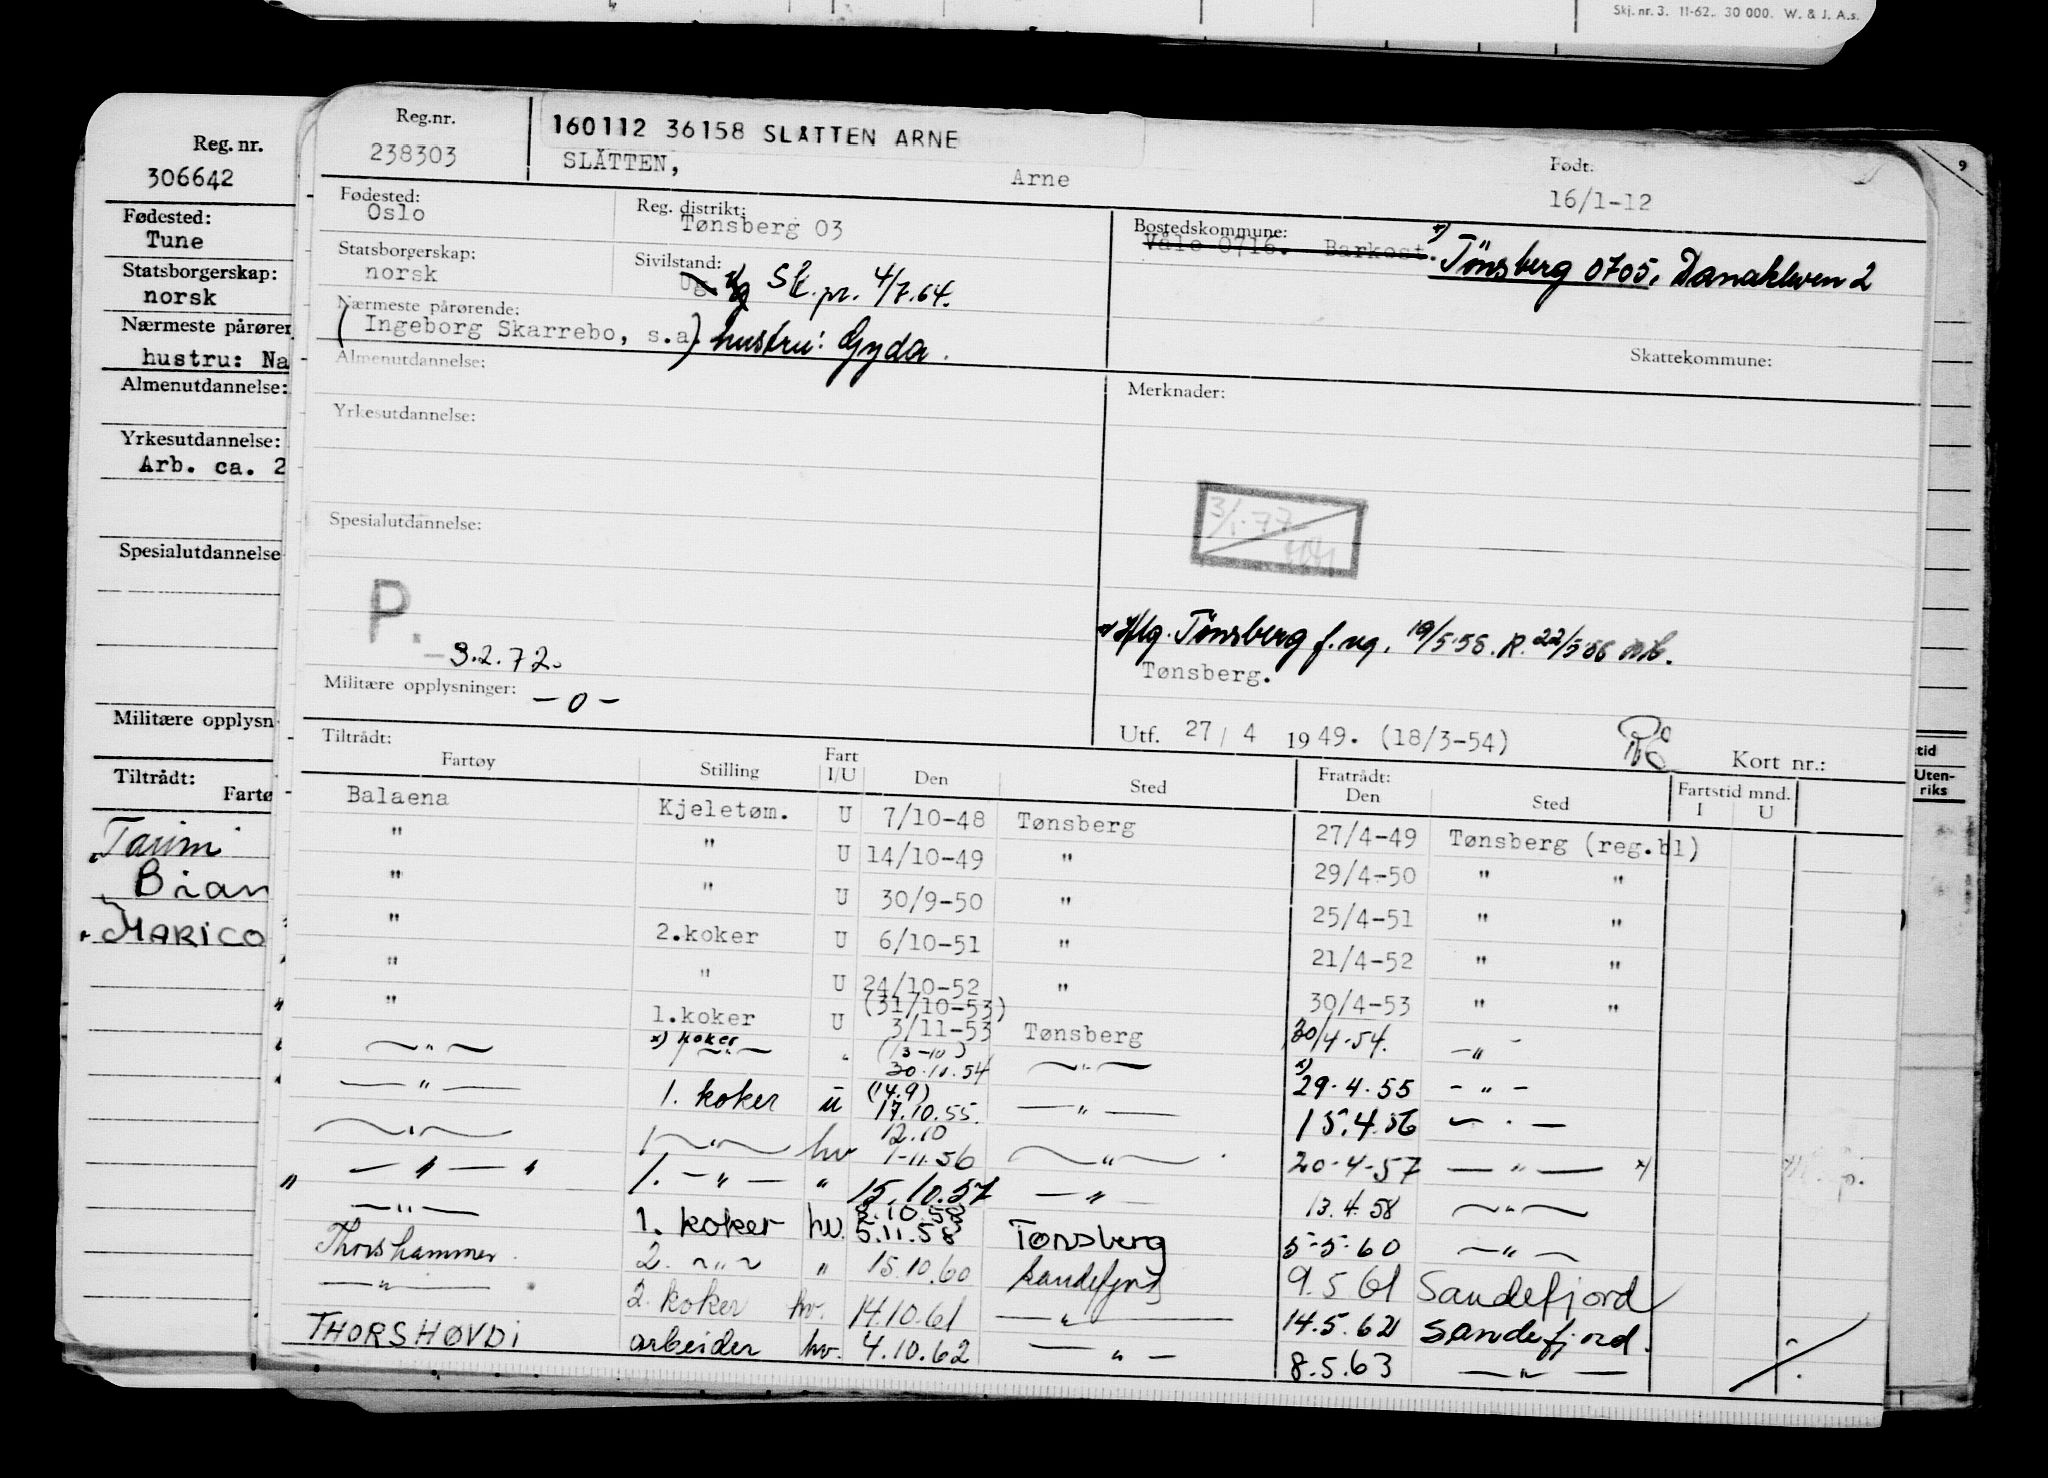 Skj. nr. 3. 11-62. 30 000. W. & J. A.s.
Reg. nr.
306642
Fødested:
Tune
Statsborgerskap:
norsk
Nærmeste pårører
hustru: Na
Almenutdannelse:
Yrkesutdannelse:
Arb. ca. 2
Spesialutdannelse
Militære opplysn
Tiltrådt:
Fartø
Taimi
Bian
MARICO
Reg.nr.
238303
160112 36158 SLÅTTEN ARNE
SLÅTTEN, Arne
Født:
16/1-12
Fødested:
Oslo
Reg. distrikt:
Tønsberg 03
Bostedskommune:
Våle 0716. Barkost. x) Tönsberg 0705, Danakleven 2
Statsborgerskap:
norsk
Sivilstand:
Ug. g Sk. pr. 4/7.64.
Nærmeste pårørende:
(Ingeborg Skarrebo, s.a.) hustru: Gyda.
Skattekommune:
Almenutdannelse:
Merknader:
Yrkesutdannelse:
3/1-77
Spesialutdannelse:
P.
-3.2.72.
x) Hfg. Tönsberg f. ng. 19/5-58. R. 22/5-58
Tønsberg.
Militære opplysninger: -0-
Utf. 27 / 4 1949. (18/3-54)
Kort nr.:
Tiltrådt:
Fartøy Stilling Fart I/U Den Sted Fratrådt: Den Sted Fartstid mnd. I U
Balaena Kjeletøm. U 7/10-48 Tønsberg 27/4-49 Tønsberg (reg.bl)
" " U 14/10-49 " 29/4-50 " "
" " U 30/9-50 " 25/4-51 " "
" 2.koker U 6/10-51 " 21/4-52 " "
" " U 24/10-52 " 30/4-53 " "
" 1.koker U (31/10-53) 3/11-53 Tønsberg 30/4-54. -"-
-"- x) koker -"- " (13-10) 30.10.54 -"- x) 29.4.55 -"-
-"- 1. koker u (14.9) 17.10.55. -"- 15.4.56 -"-
-"- 1 -"- hv 12.10 1-11.56 -"- 20-4-57 -"- x)
" -"- 1. -"- " 15.10.57 -"- 13.4.58 -"-
-"- 1. koker hv. 2.10.58 5.11.58 Tønsberg 5-5-60 -"-
Thorshammer 2. -"- " 15.10.60 Sandefjord 9.5 61 Sandefjord
-"- 2. koker hv. 14.10.61 -"- 14.5.62 Sandefjord.
THORSHØVDI arbeider hv. 4.10.62 -"- 8.5.63 -"-
9
tid
Uten-
riks